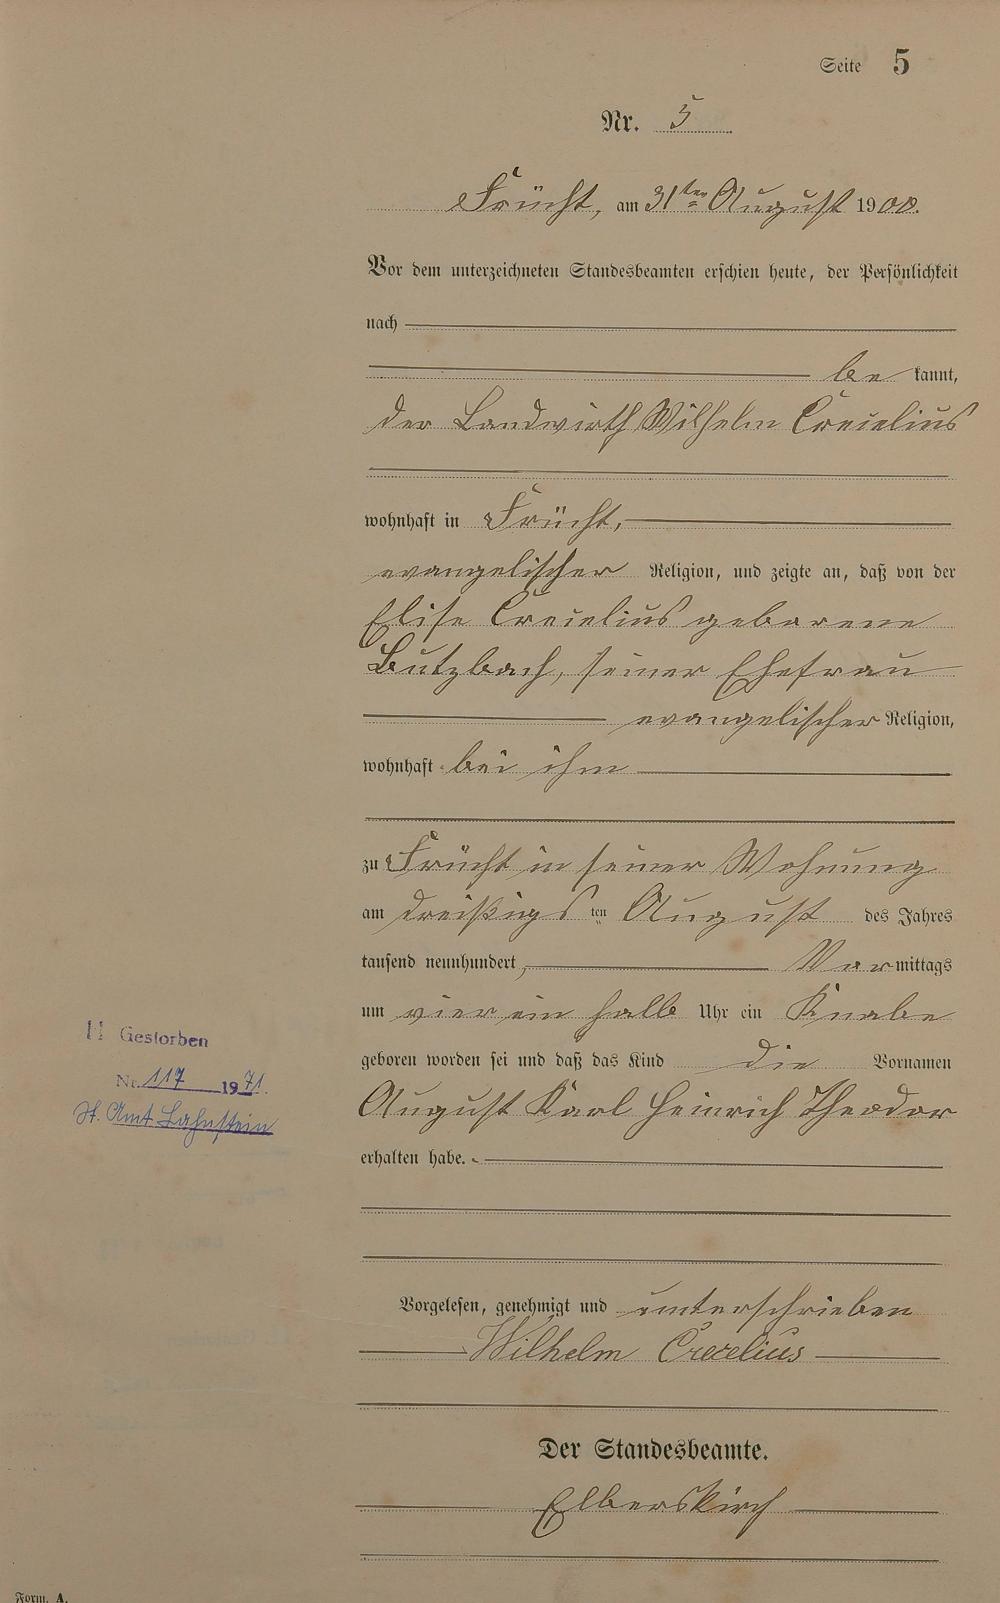 Seite 5
Nr. 5
Frücht, am 31ten August 1900.
Vor dem unterzeichneten Standesbeamten erschien heute, der Persönlichkeit
nach
be kannt,
der Landwirth Wilhelm Crecelius
wohnhaft in Frücht,
evangelischer Religion, und zeigte an, daß von der
Elise Crecelius geborene
Butzbach, seiner Ehefrau
evangelischer Religion,
wohnhaft bei ihm
zu Frücht in seiner Wohnung
am dreißigs ten August des Jahres
tausend neunhundert, Vor mittags
um vier ein halb Uhr ein Knabe
geboren worden sei und daß das Kind die Vornamen
August Karl Heinrich Theodor
erhalten habe.
Vorgelesen, genehmigt und unterschrieben
Wilhelm Crecelius
Der Standesbeamte.
Elberskirch
H Gestorben
Nr. 117 1971.
St. Amt Lahnstein
Form. A.